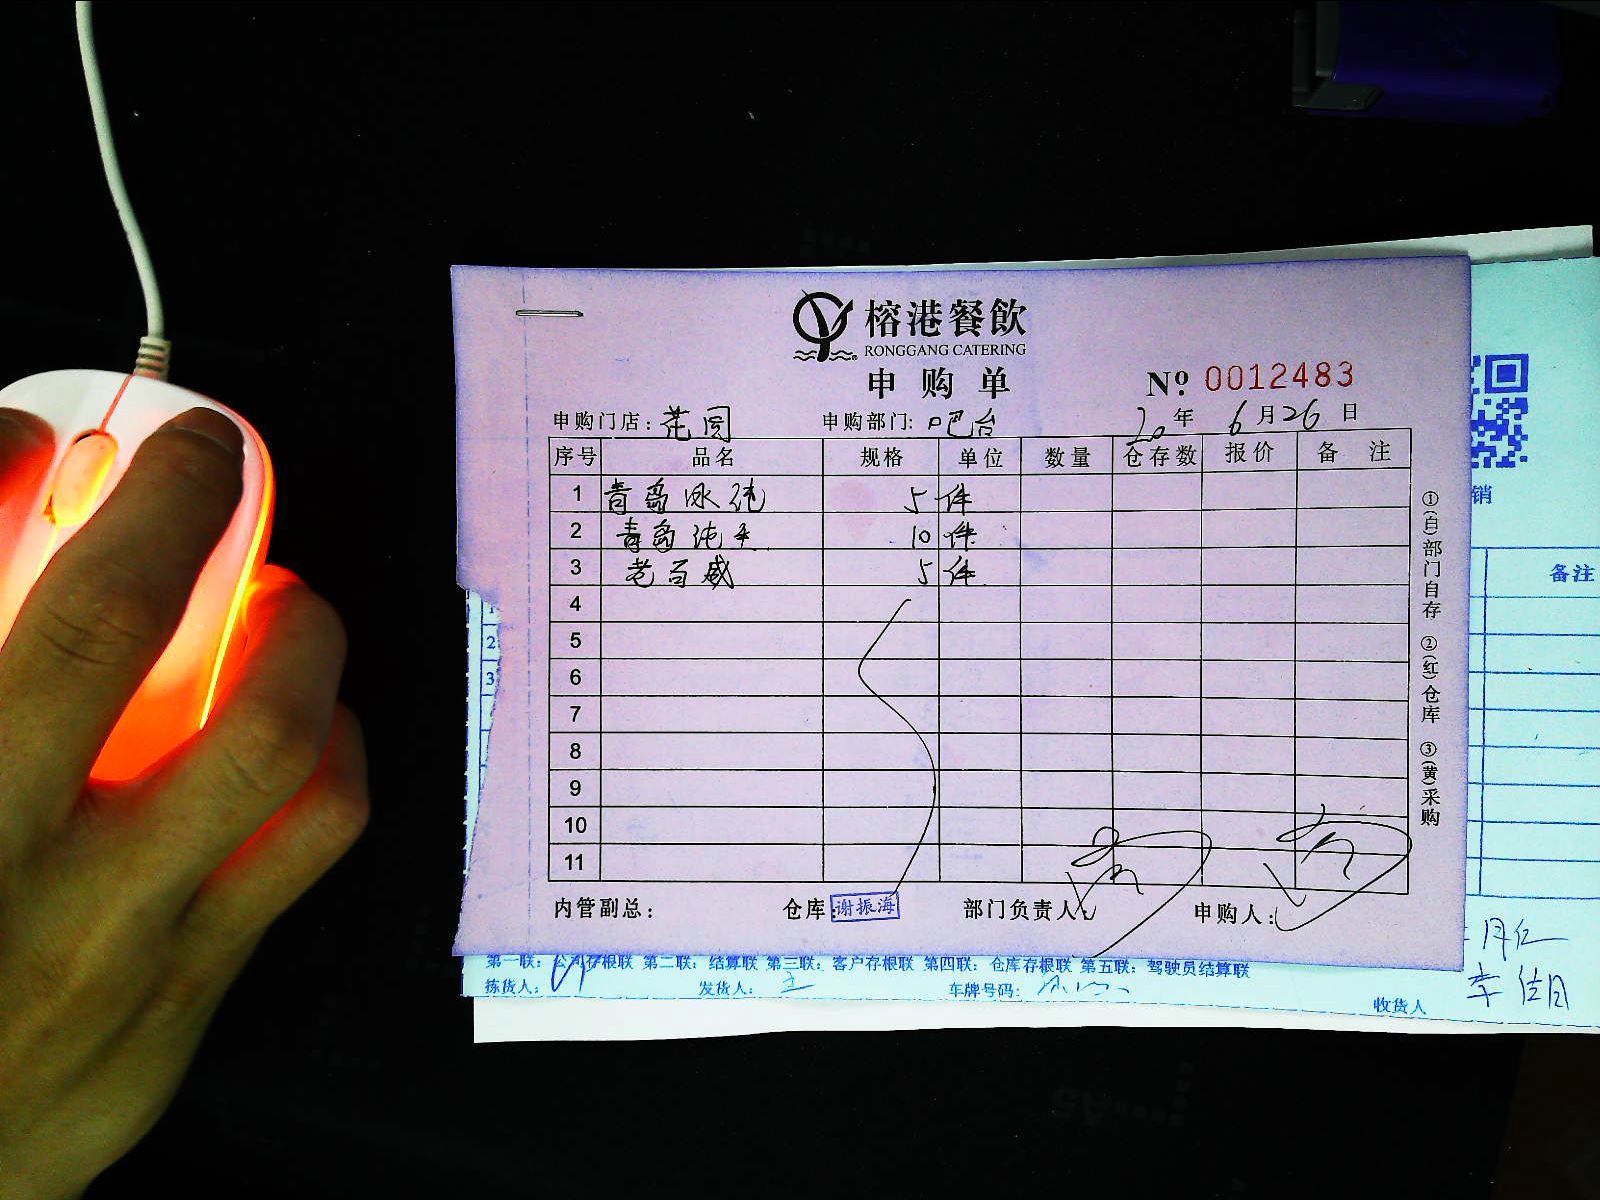 榕港餐飲
RONGGANG CATERING
申购单
№ 0012483
申购门店: 花园 申购部门: 吧台 20年 6月26日
序号 品名 规格 单位 数量 仓存数 报价 备注
1 青岛冰纯 5 件
2 青岛纯生 10 件
3 老百威 5 件
4
5
6
7
8
9
10
11
内管副总: 仓库: 谢振海 部门负责人: 申购人:
①(白)部门自存 ②(红)仓库 ③(黄)采购
销
备注
1
2
3
第一联: 公司存根联 第二联: 结算联 第三联: 客户存根联 第四联: 仓库存根联 第五联: 驾驶员结算联
拣货人: 发货人: 车牌号码: 收货人